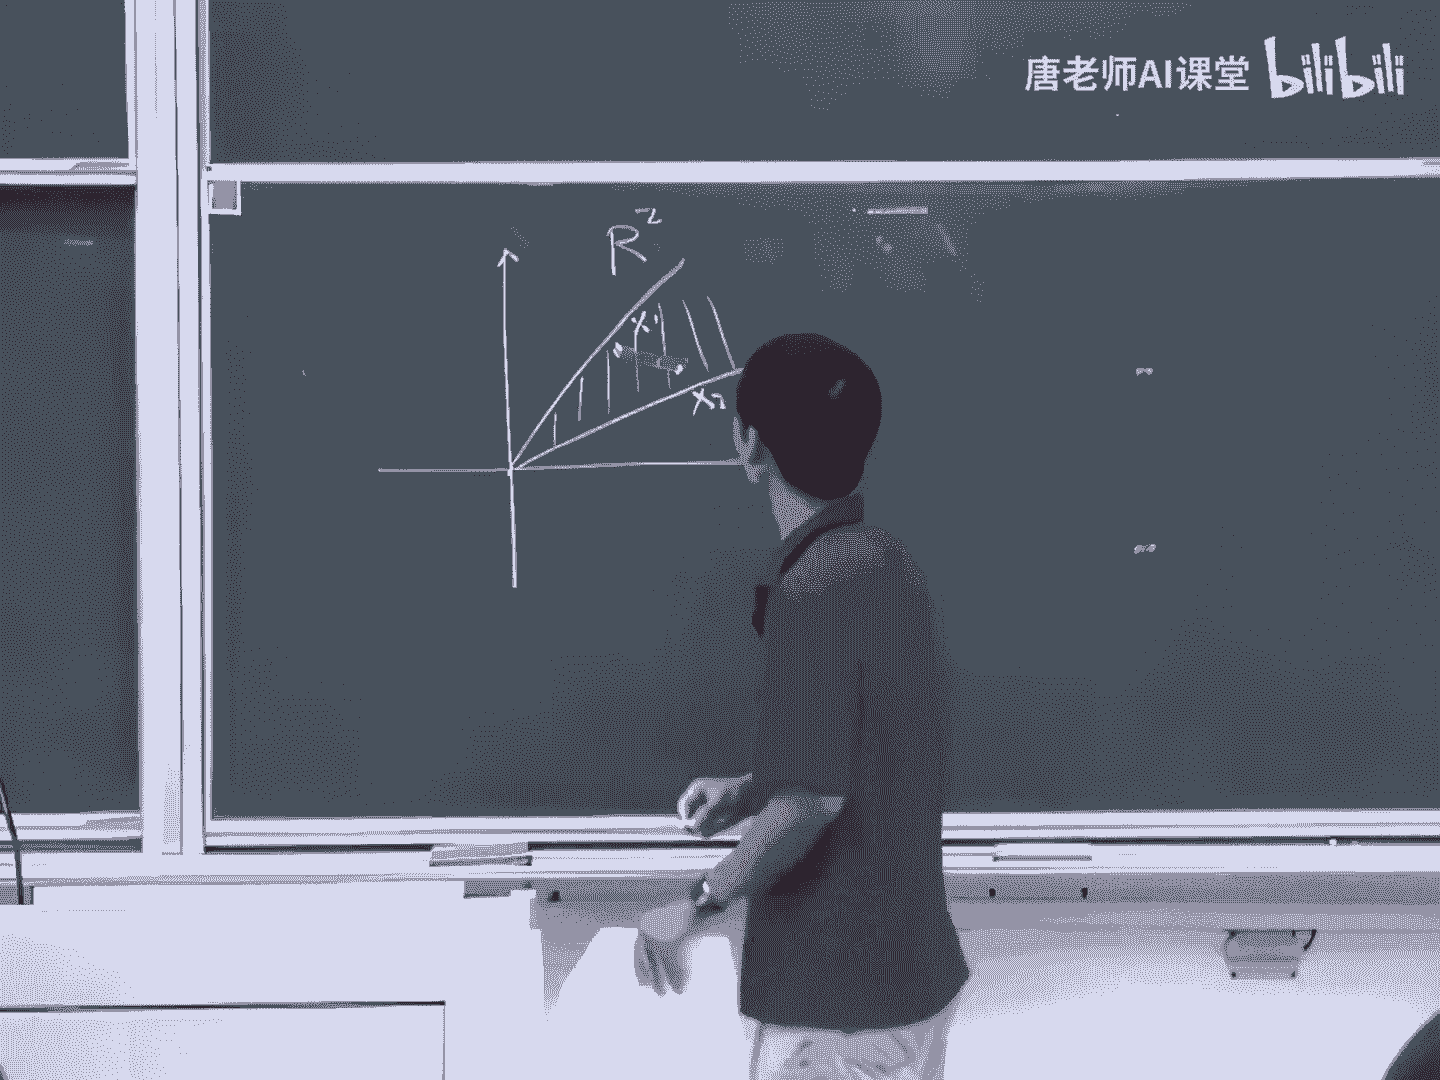 唐老师AI课堂 bilibili
R²
x₁
x₂